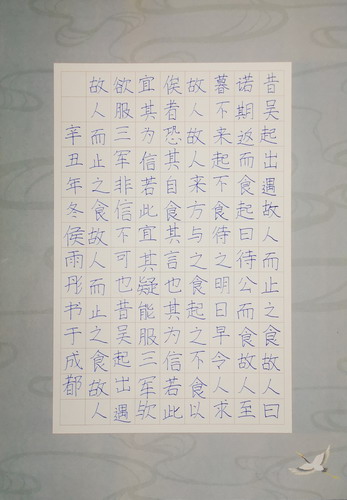 昔吴起出遇故人而止之食故人曰
诺期返而食起曰待公而食故人至
暮不来起不食待之明日早令人求
故人故人来方与之食起之不食以
俟者恐其自食其言也其为信若此
宜其为信若此宜其疑能服三军欤
欲服三军非信不可也昔吴起出遇
故人而止之食故人而止之食故人
辛丑年冬侯雨彤书于成都